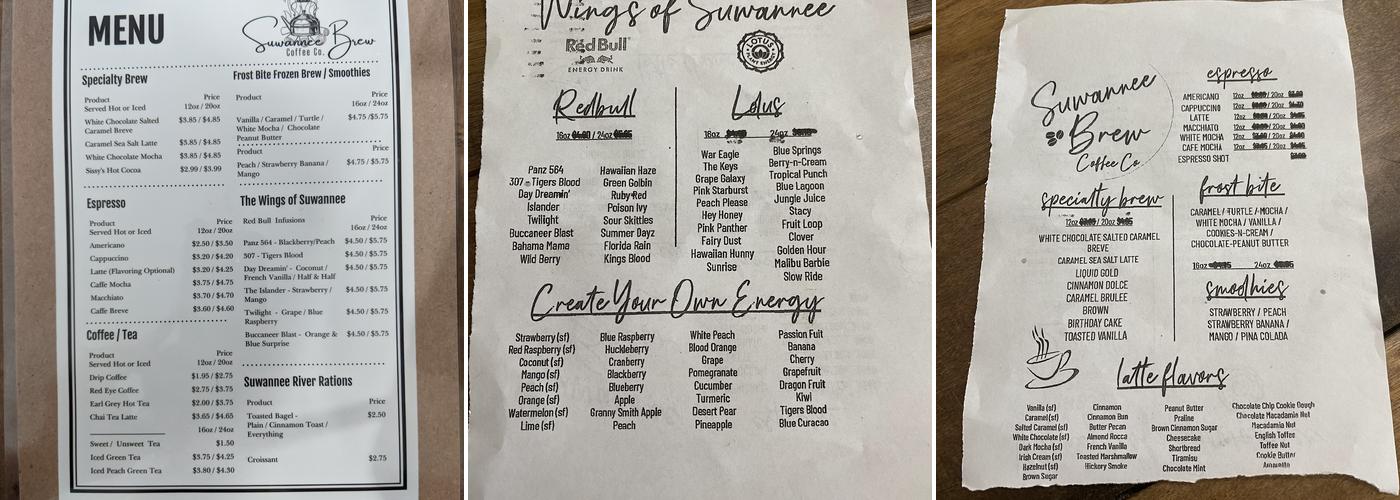 MENU
Suwannee Brew
Coffee Co.
Specialty Brew
Product Price
Served Hot or Iced 12oz / 20oz
White Chocolate Salted $3.85 / $4.85
Caramel Breve
Caramel Sea Salt Latte $3.85 / $4.85
White Chocolate Mocha $3.85 / $4.85
Sissy's Hot Cocoa $2.99 / $3.99
Espresso
Product Price
Served Hot or Iced 12oz / 20oz
Americano $2.50 / $3.50
Cappuccino $3.20 / $4.20
Latte (Flavoring Optional) $3.20 / $4.25
Caffe Mocha $3.75 / $4.75
Macchiato $3.70 / $4.70
Caffe Breve $3.60 / $4.60
Coffee / Tea
Product Price
Served Hot or Iced 12oz / 20oz
Drip Coffee $1.95 / $2.75
Red Eye Coffee $2.75 / $3.75
Earl Grey Hot Tea $2.00 / $3.75
Chai Tea Latte $3.65 / $4.65
16oz / 24oz
Sweet / Unsweet Tea $1.50
Iced Green Tea $3.75 / $4.25
Iced Peach Green Tea $3.80 / $4.30
Frost Bite Frozen Brew / Smoothies
Product Price
16oz / 24oz
Vanilla / Caramel / Turtle / $4.75 /$5.75
White Mocha / Chocolate
Peanut Butter
Product Price
16oz / 24oz
Peach / Strawberry Banana / $4.75 /$5.75
Mango
The Wings of Suwannee
Red Bull Infusions Price
16oz / 24oz
Panz 564 - Blackberry/Peach $4.50 / $5.75
507 - Tigers Blood $4.50 / $5.75
Day Dreamin' - Coconut / $4.50 / $5.75
French Vanilla / Half & Half
The Islander - Strawberry / $4.50 / $5.75
Mango
Twilight - Grape / Blue $4.50 / $5.75
Raspberry
Buccaneer Blast - Orange & $4.50 / $5.75
Blue Surprise
Suwannee River Rations
Product Price
Toasted Bagel - $2.50
Plain / Cinnamon Toast /
Everything
Croissant $2.75
Wings of Suwannee
Red Bull
ENERGY DRINK
LOTUS
PLANT ENERGY
Redbull
16oz / 24oz
Panz 564
307 Tigers Blood
Day Dreamin'
Islander
Twilight
Buccaneer Blast
Bahama Mama
Wild Berry
Hawaiian Haze
Green Golbin
Ruby Red
Poison Ivy
Sour Skittles
Summer Dayz
Florida Rain
Kings Blood
Lotus
16oz 24oz
War Eagle
The Keys
Grape Galaxy
Pink Starburst
Peach Please
Hey Honey
Pink Panther
Fairy Dust
Hawaiian Hunny
Sunrise
Blue Springs
Berry-n-Cream
Tropical Punch
Blue Lagoon
Jungle Juice
Stacy
Fruit Loop
Clover
Golden Hour
Malibu Barbie
Slow Ride
Create Your Own Energy
Strawberry (sf)
Red Raspberry (sf)
Coconut (sf)
Mango (sf)
Peach (sf)
Orange (sf)
Watermelon (sf)
Lime (sf)
Blue Raspberry
Huckleberry
Cranberry
Blackberry
Blueberry
Apple
Granny Smith Apple
Peach
White Peach
Blood Orange
Grape
Pomegranate
Cucumber
Turmeric
Desert Pear
Pineapple
Passion Fuit
Banana
Cherry
Grapefruit
Dragon Fruit
Kiwi
Tigers Blood
Blue Curacao
Suwannee
Brew
Coffee Co.
espresso
AMERICANO 12oz / 20oz
CAPPUCCINO 12oz / 20oz
LATTE 12oz / 20oz
MACCHIATO 12oz / 20oz
WHITE MOCHA 12oz / 20oz
CAFE MOCHA 12oz / 20oz
ESPRESSO SHOT
specialty brew
12oz / 20oz
WHITE CHOCOLATE SALTED CARAMEL
BREVE
CARAMEL SEA SALT LATTE
LIQUID GOLD
CINNAMON DOLCE
CARAMEL BRULEE
BROWN
BIRTHDAY CAKE
TOASTED VANILLA
frost bite
CARAMEL / TURTLE / MOCHA /
WHITE MOCHA / VANILLA /
COOKIES-N-CREAM /
CHOCOLATE-PEANUT BUTTER
16oz 24oz
smoothies
STRAWBERRY / PEACH
STRAWBERRY BANANA /
MANGO / PINA COLADA
latte flavors
Vanilla (sf)
Caramel (sf)
Salted Caramel (sf)
White Chocolate (sf)
Dark Mocha (sf)
Irish Cream (sf)
Hazelnut (sf)
Brown Sugar
Cinnamon
Cinnamon Bun
Butter Pecan
Almond Rocca
French Vanilla
Toasted Marshmallow
Hickory Smoke
Peanut Butter
Praline
Brown Cinnamon Sugar
Cheesecake
Shortbread
Tiramisu
Chocolate Mint
Chocolate Chip Cookie Dough
Chocolate Macadamia Nut
Macadamia Nut
English Toffee
Toffee Nut
Cookie Butter
Amaretto